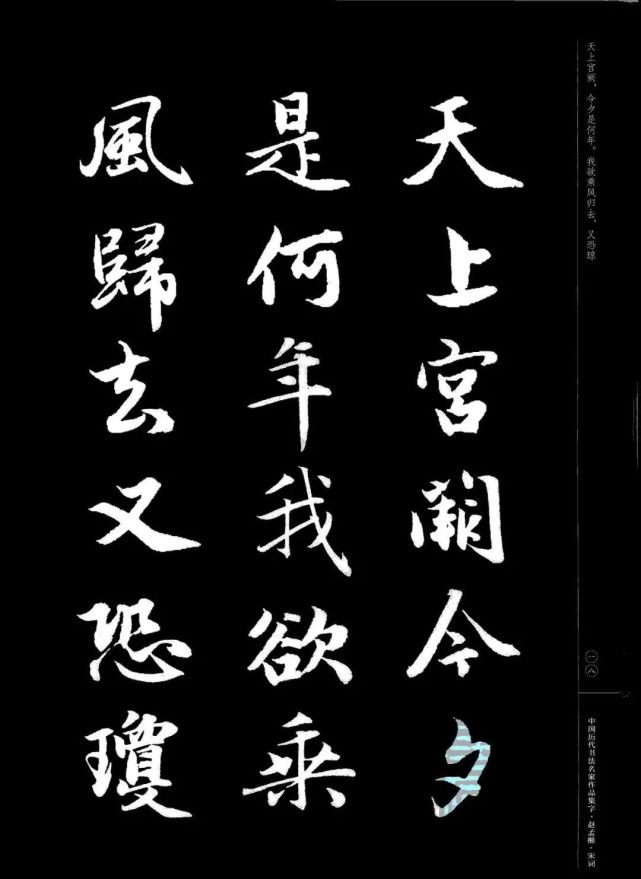 天上宮闕今夕
是何年我欲乘
風歸去又恐瓊
天上宫阙，今夕是何年。我欲乘风归去，又恐琼
一八
中国历代书法名家作品集字·赵孟頫·宋词